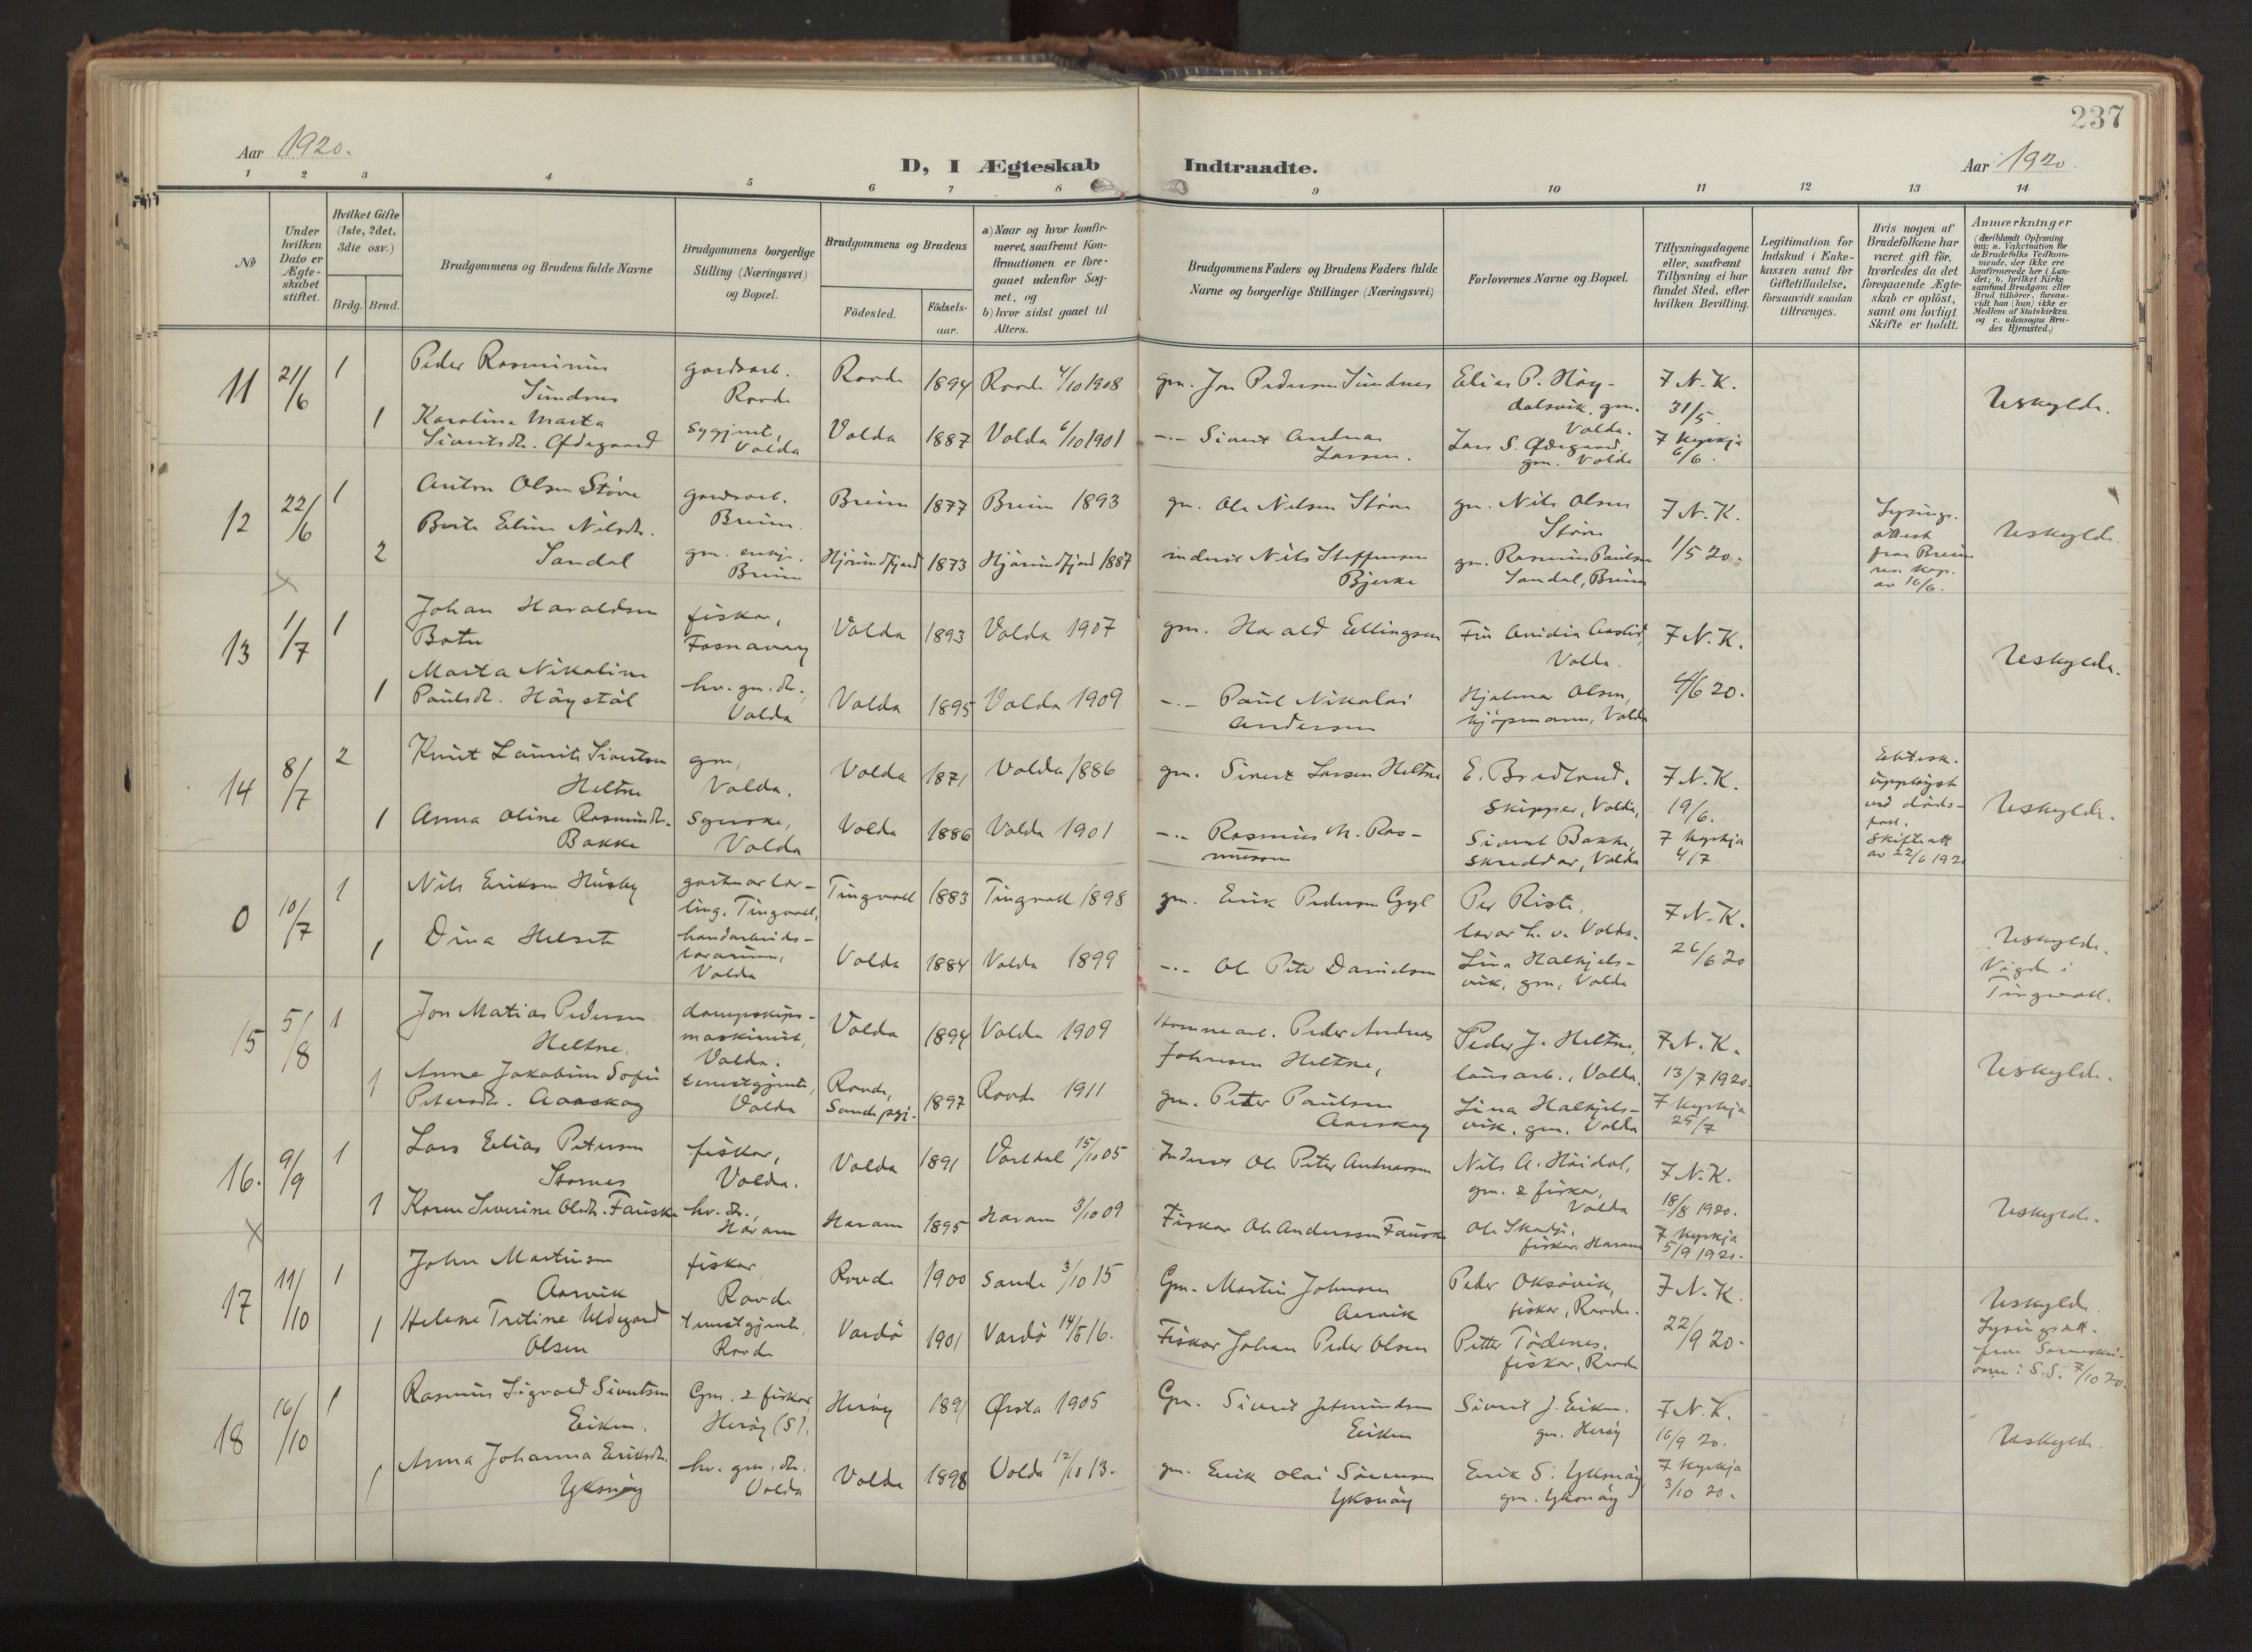 237
Aar 1920.
D, I Ægteskab Indtraadte.
Aar 1920.
1 2 3 4 5 6 7 8 9 10 11 12 13 14
No
Under hvilken Dato er Ægteskabet stiftet.
Hvilket Gifte (1ste, 2det, 3die osv.)
Brdg. Brud.
Brudgommens og Brudens fulde Navne
Brudgommens borgerlige Stilling (Næringsvei) og Bopæl.
Brudgommens og Brudens
Födested.
Födsels-aar.
a) Naar og hvor konfirmeret, saafremt Konfirmationen er foregaaet udenfor Sognet, og
b) hvor sidst gaaet til Alters.
Brudgommens Faders og Brudens Faders fulde Navne og borgerlige Stillinger (Næringsvei)
Forlovernes Navne og Bopæl.
Tillysningsdagene eller, saafremt Tillysning ei har fundet Sted, efter hvilken Bevilling.
Legitimation for Indskud i Enkekassen samt for Giftetilladelse, forsaavidt saadan tiltrænges.
Hvis nogen af Brudefolkene har været gift för, hvorledes da det foregaaende Ægteskab er oplöst, samt om lovligt Skifte er holdt.
Anmærkninger
(deriblandt Oplysning om: a. Vakcination for de Brudefolks Vedkommende, der ikke ere konfirmerede her i Landet; b. hvilket Kirkesamfund Brudgom eller Brud tilhörer, forsaavidt han (hun) ikke er Medlem af Statskirken og c. udensogns Brudes Hjemsted.)
11 21/6 1 Peder Rasminus Sundnes gardsarb. Rovde Rovde 1894 Rovde 4/10 1908 gm. Jon Pedersen Sundnes Elias P. Høydalsvik, gm. Volda. F N. K. 31/5. Uskylde.
1 Karoline Marta Sivertsdr. Ødegaard sygjent, Volda Volda 1887 Volda 6/10 1901 -.- Sivert Andreas Larsen. Lars S. Ødegaard. gm. Volda F kyrkja 6/6.
12 22/6 1 Anton Olsen Støve gardsarb. Breim. Breim 1877 Breim 1893 gm. Ole Nilsen Støve gm. Nils Olsen Støve F N. K. 1/5 20. Lysingsattest fraa Breim res. kap. av 16/6. Uskylde.
2 Berte Eline Nilsdr. Sandal gm. enkje. Breim Hjørundfjord 1873 Hjørundfjord 1887 inderst Nils Steffensen Bjerke gm. Rasmus Paulsen Sandal, Breim
13 1/7 1 Johan Haraldsen Botn fiskar, Fosnavaag Volda 1893 Volda 1907 gm. Harald Ellingsen Volda. F N. K. 4/6 20. Uskylde.
1 Marta Nikoline Paulsdr. Høystøl hv. gm. dr., Volda Volda 1895 Volda 1909 -.- Paul Nikolai Andersen Hjalmar Olsen, kjøpmann, Volda
14 8/7 2 Knut Laurits Sivertsen Heltne gm, Volda. Volda 1871 Volda 1886 gm. Sivert Larsen Heltne E. Bredlund, skipper, Volda, F N. K. 19/6. Ektesk. uppløyst ved dødsfall. Skifteatt av 22/6 192 Uskylde.
1 Anna Oline Rasmusdr. Bakke Syerske, Volda Volda 1886 Volda 1901 -.- Rasmus M. Rasmussen Sivert Bakke, skreddar, Volda F kyrkja 4/7
0 10/7 1 Nils Eriksen Husby Tingvoll, Tingvoll 1883 Tingvoll 1898 gm. Erik Pedersen Gyl Per Riste, lærar h. v. Volda. F N. K. 26/6 20 Uskylde. Vigde i Tingvoll.
1 Dina Helset handarbeids-lærarinne, Volda Volda 1884 Volda 1899 -.- Ole Peter Danielsen Lina Halkjelsvik, gm, Volda
15 5/8 1 Jon Matias Pedersen Heltne. dampskips-maskinist, Volda. Volda 1894 Volda 1909 Peder Andreas Johnsen Heltne, Peder J. Heltne, lausarb., Volda. F N. K. 13/7 1920. Uskylde.
1 Anne Jakobine Sofie Petersdr. Aarskog tenestgjente, Volda Rovde, Sande pgj. 1897 Rovde 1911 gm. Peter Paulsen Aarskog Lina Halkjelsvik, gm. Volda F kyrkja 25/7
16. 9/9 1 Lars Elias Petersen Stornes fiskar, Volda. Volda 1891 Vartdal 15/10 05 Inderst Ole Peter Andreassen Nils A. Høidal, gm. & fiskar, Volda F N. K. 18/8 1920. Uskylde.
1 Karen Severine Olsdr. Fauske hv. dr., Haram Haram 1895 Haram 3/10 09 Fiskar Ole Anderssen Fauske Ole Skodje, fiskar Haram F kyrkja 5/9 1920.
17 11/10 1 John Martinsen Aarvik fiskar Rovde Rovde 1900 Sande 3/10 15 Gm. Martin Johnsen Aarvik Peder Oksavik, fiskar, Rovde. F N. K. 22/9 20. Uskylde. Lysingsatt. fraa Sorenskrivaren i S.S. 7/10 20.
1 Helene Tretine Uldegard Olsen tenestgjente, Rovde Vardø 1901 Vardø 14/5 16. Fiskar Johan Peder Olsen Petter Tødenes, fiskar, Rovde
18 16/10 1 Rasmus Sigvald Sivertsen Eiken. Gm. & fiskar, Herøy (S). Herøy 1891 Ørsta 1905 Gm. Sivert Jetmundsen Eiken Sivert J. Eiken. gm. Herøy F N. K. 16/9 20. Uskylde.
1 Anna Johanna Eriksdr. Yksnøy hv. gm. dr. Volda Volda 1898 Volda 12/10 13. gm. Erik Olai Sørensen Yksnøy Erik S. Yksnøy gm. Yksnøy F kyrkja 3/10 20.